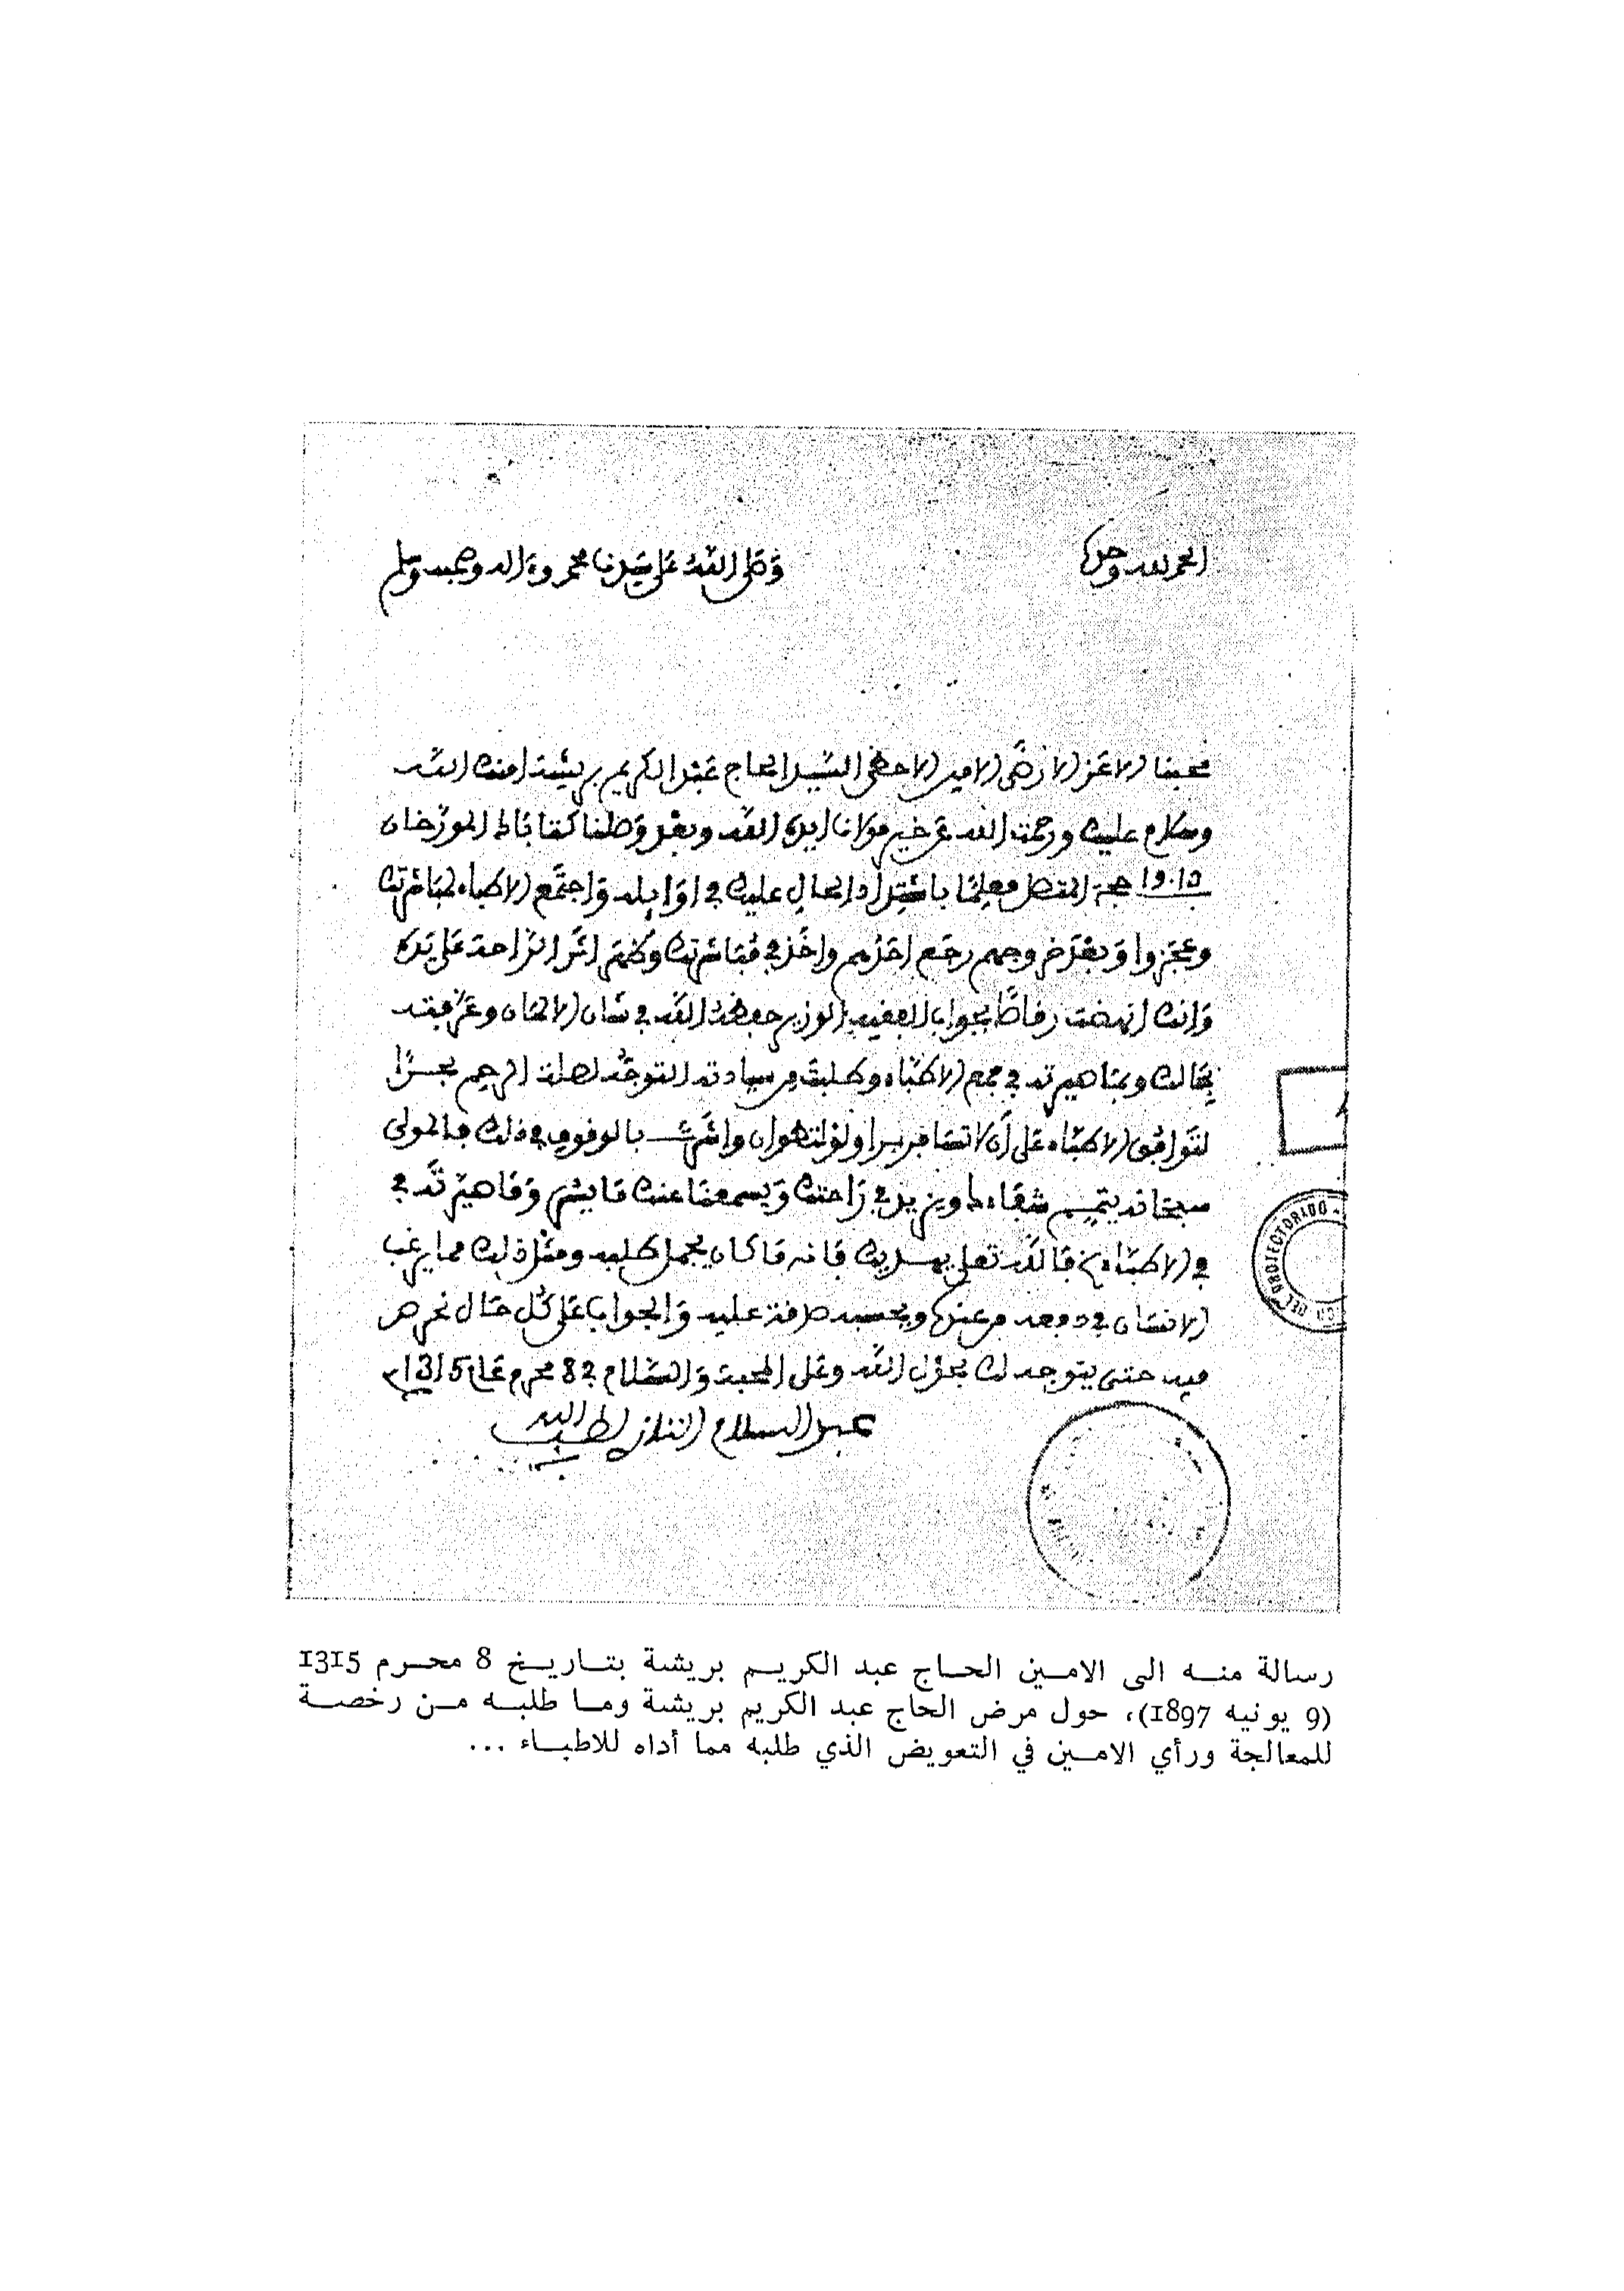 الحمد لله وحده
وصلى الله على سيدنا محمد وءاله وصحبه وسلم
محبنا الاعز الارضى الامين الاحظى السيد الحاج عبد الكريم بريشة امنك الله
وسلام عليك ورحمت الله عن خير مولانا ايده الله وبعد وصلنا كتاباك المورخان
15 و19 حجة معلما باشتداد الحال عليك في اوايله واجتمع الاطباء لمباشرتك
وعجزوا وبعد خروجهم رجع احدهم واخذ في مباشرتك وظهر اثر الراحة على يده
وانك انهضت رقاصا بجواب الفقيه الوزير حفظه الله في شان وعرفته
بحالك وبما في مجمع الاطباء وطلبت من سيادته التوجه لصلة الرحم بحرا
لتوافق الاطباء على أن لا تسافر برا ولو لتطوان بالوقوف في ذلك فالمولى
سبحانه يتمم شفاءك ويزيد في راحتك ويسمعنا عنك ما يسر وما في
في الاطباء فالله تعلى فانه ما كان يجمل طلبه ومثل ذلك مما يرغب
الانسان في دفعه من عنده ويحسبه صدقة عليه والجواب على كل حال نحرص
فيه حتى يتوجه لك بحول الله وعلى المحبة والسلام في 8 محرم عام 1315
عبد السلام التازي لطف الله به
DEL PROTECTORADO
رسالة منه الى الامين الحاج عبد الكريم بريشة بتاريخ 8 محرم 1315
(9 يونيه 1897)، حول مرض الحاج عبد الكريم بريشة وما طلبه من رخصة
للمعالجة ورأي الامين في التعويض الذي طلبه مما أداه للاطباء ...